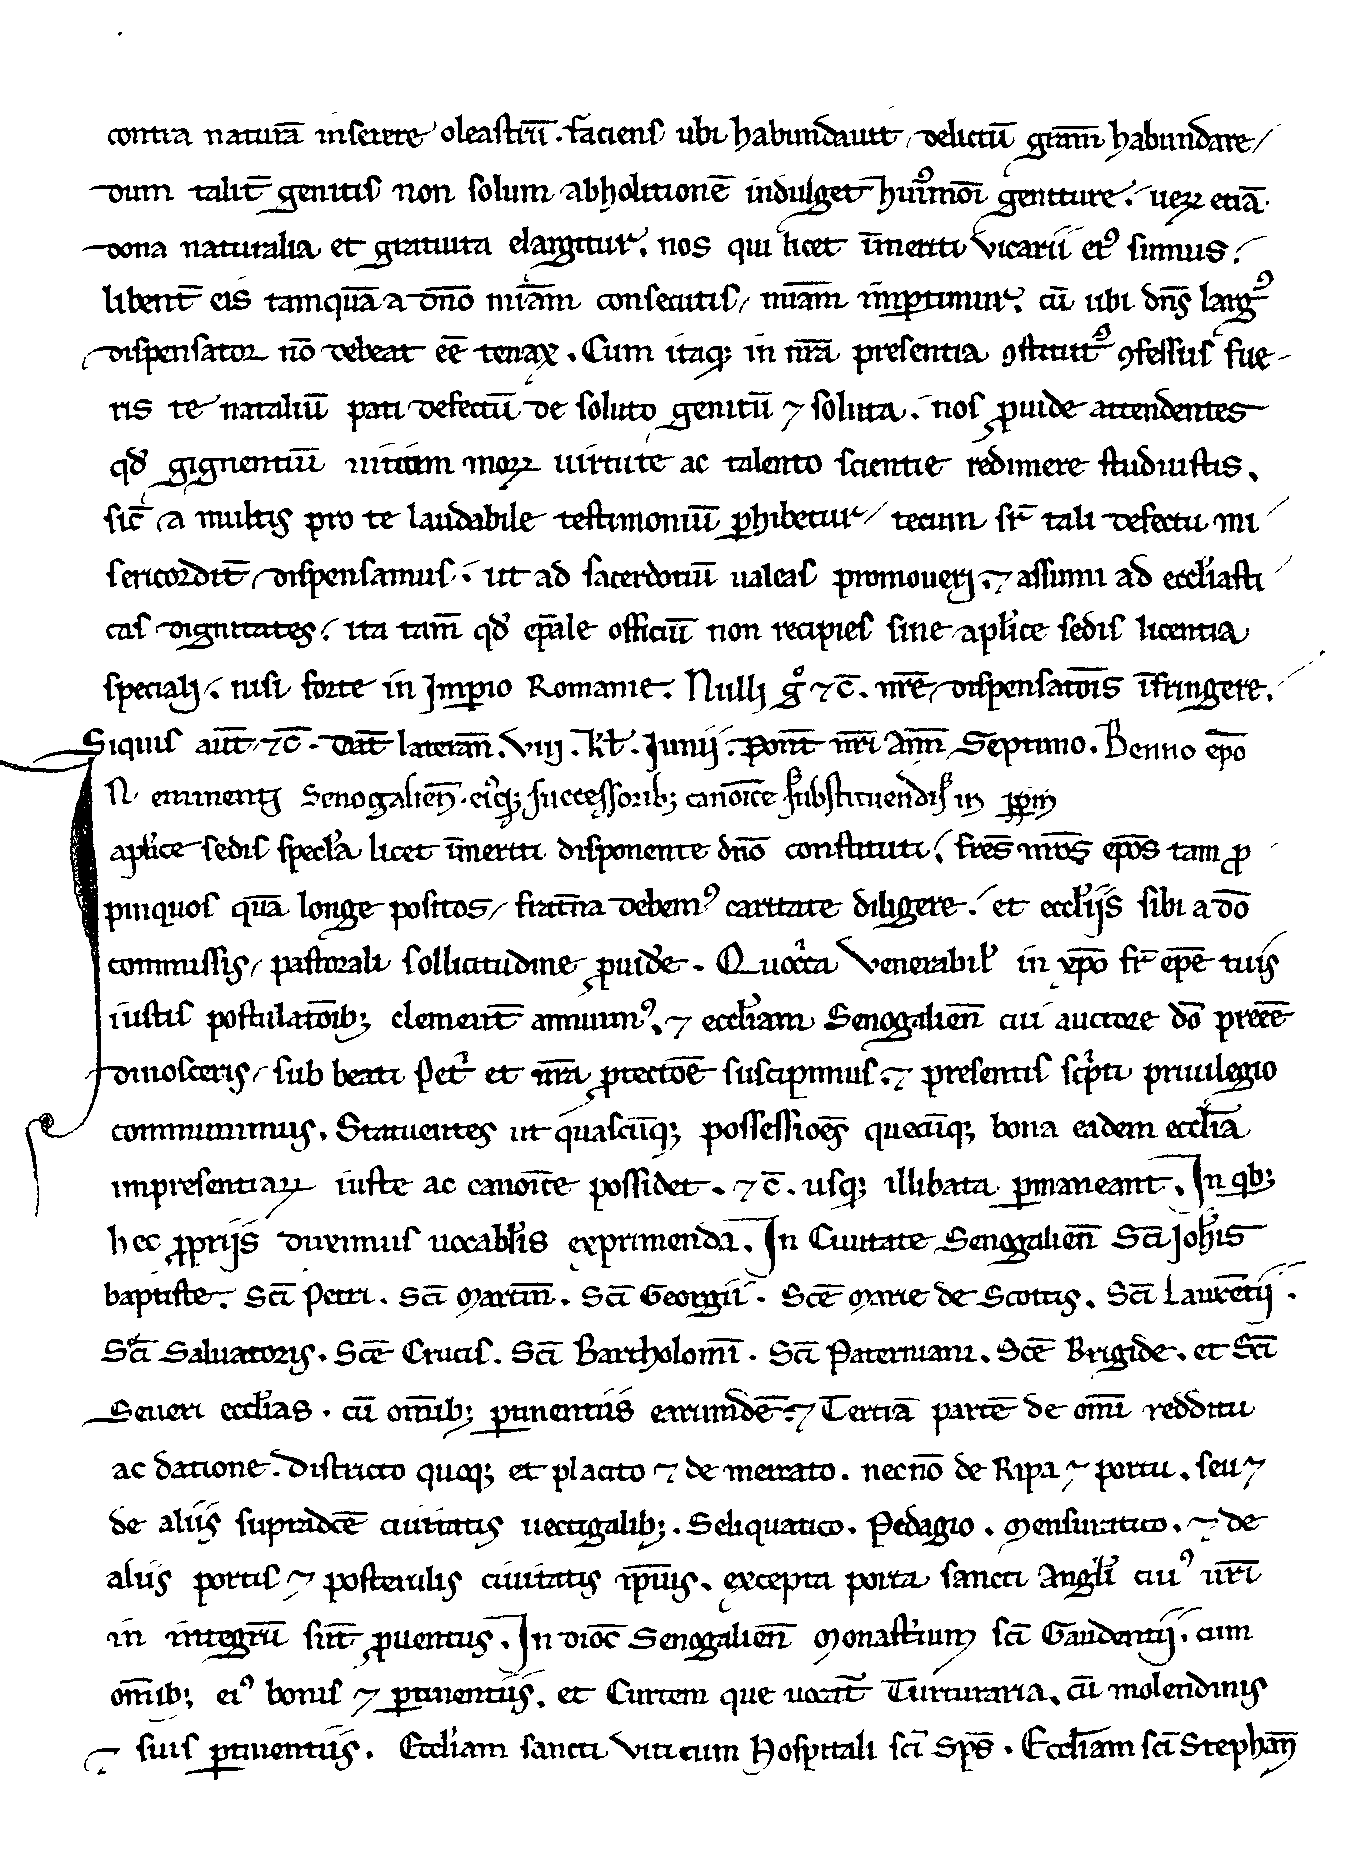 contra naturā inserere oleastrū. faciens ubi habundauit, delictū grām habundare,
dum talit̄ genitis non solum abholitionē indulget hui9modi geniture. ueꝝ etiā.
dona naturalia et gratuita elargitur. nos qui licet īmeriti vicarii ei9 simus.
libent̄ eis tamquā a dn̄o mīam consecutis, mīam imꝑtimur. cū ubi dn̄s larg9
dispensator nō debeat eē tenax. Cum itaqꝫ in nr̄a presentia ꝯstitut9 ꝯfessus fue-
ris te nataliū pati defectū de soluto genitū ⁊ soluta. nos ꝓuide attendentes
qd̄ gignentiū uitium moꝝ uirtute ac talento scientie redimere studuistis.
sic̄ a multis pro te laudabile testimoniū ꝑhibetur, tecum sr̄ tali defectu mi
sericordit̄ dispensamus. ut ad sacerdotiū ualeas promoueri. ⁊ assumi ad eccl̄iasti
cas dignitates. ita tam̄ qd̄ ep̄ale officiū non recipies sine apl̄ice sedis licentia
speciali. nisi forte in Imꝑio Romanie. Nulli g̊ ⁊c̄. nr̄e dispensatōis īfringere.
Siquis aut̄ ⁊c̄. Dat̄ lateran̄. viij. kl̄. Junij. Pont̄ nr̄i Ann̄ Septimo. Benno ep̄o
IN eminenti Senogalien̄. ei9qꝫ successoribꝫ canonīce substituendis in ꝑpm̄
apl̄ice sedis specl̄a licet īmeriti disponente dn̄o constituti, fr̄es nr̄os ep̄os tam ꝓ
pinquos quā longe positos, frat̄na debem9 caritate diligere. et eccl̄ijs sibi a dō
commissis, pastorali sollicitudine ꝓuide. Quocc̄a venerabil̄ in xp̄o fr̄ ep̄e tuis
iustis postulatōibꝫ clement̄ annuim9. ⁊ eccl̄iam Senogalien̄ cui auctore dō preēē
dinosceris, sub beati Petr̄ et nr̄a ꝓtectōe suscipimus. ⁊ presentis scp̄ti priuilegio
communimus. Statuentes ut quascūqꝫ possessiōes quecūqꝫ bona eadem eccl̄ia
impresentiaꝝ iuste ac canonīce possidet. ⁊c̄. usqꝫ illibata ꝑmaneant. In qbꝫ
hec ꝓpriis duximus uocabl̄is exprimenda. In Ciuitate Senogalien̄ Sc̄i Joh̄is
baptiste. Sc̄i Petri. Sc̄i Martin̄. Sc̄i Georgii. Sc̄e Marie de Scottis. Sc̄i Laurētij.
Sc̄i Saluatoris. Sc̄e Crucis. Sc̄i Bartholom̄i. Sc̄i Paterniani. Sc̄e Brigide. et Sc̄i
Seueri eccl̄ias. cū om̄ibꝫ ꝑtinentiis earumdē. ⁊ Tertiā partē de om̄i redditu
ac datione. Districto quoqꝫ et placito ⁊ de mercato. necnō de Ripa ⁊ portu. seu ⁊
de aliis supradc̄e ciuitatis uectigalibꝫ. Seliquatico. Pedagio. Mensuratico. ⁊ de
aliis portis ⁊ posterulis ciuitatis ip̄ius. excepta porta sancti Angl̄i cui9 ur̄i
in integrū sūt ꝓuentus. In dioc̄ Senogalien̄ Monast̄ium sc̄i Gaudentij. cum
om̄ibꝫ ei9 bonis ⁊ ꝑtinentiis. et Curtem que uocat̄ Turturaria. cū molendinis
⁊ suis ꝑtinentiis. Eccl̄iam sancti Viti cum Hospitali sc̄i Sp̄s. Eccl̄iam sc̄i Stephan̄